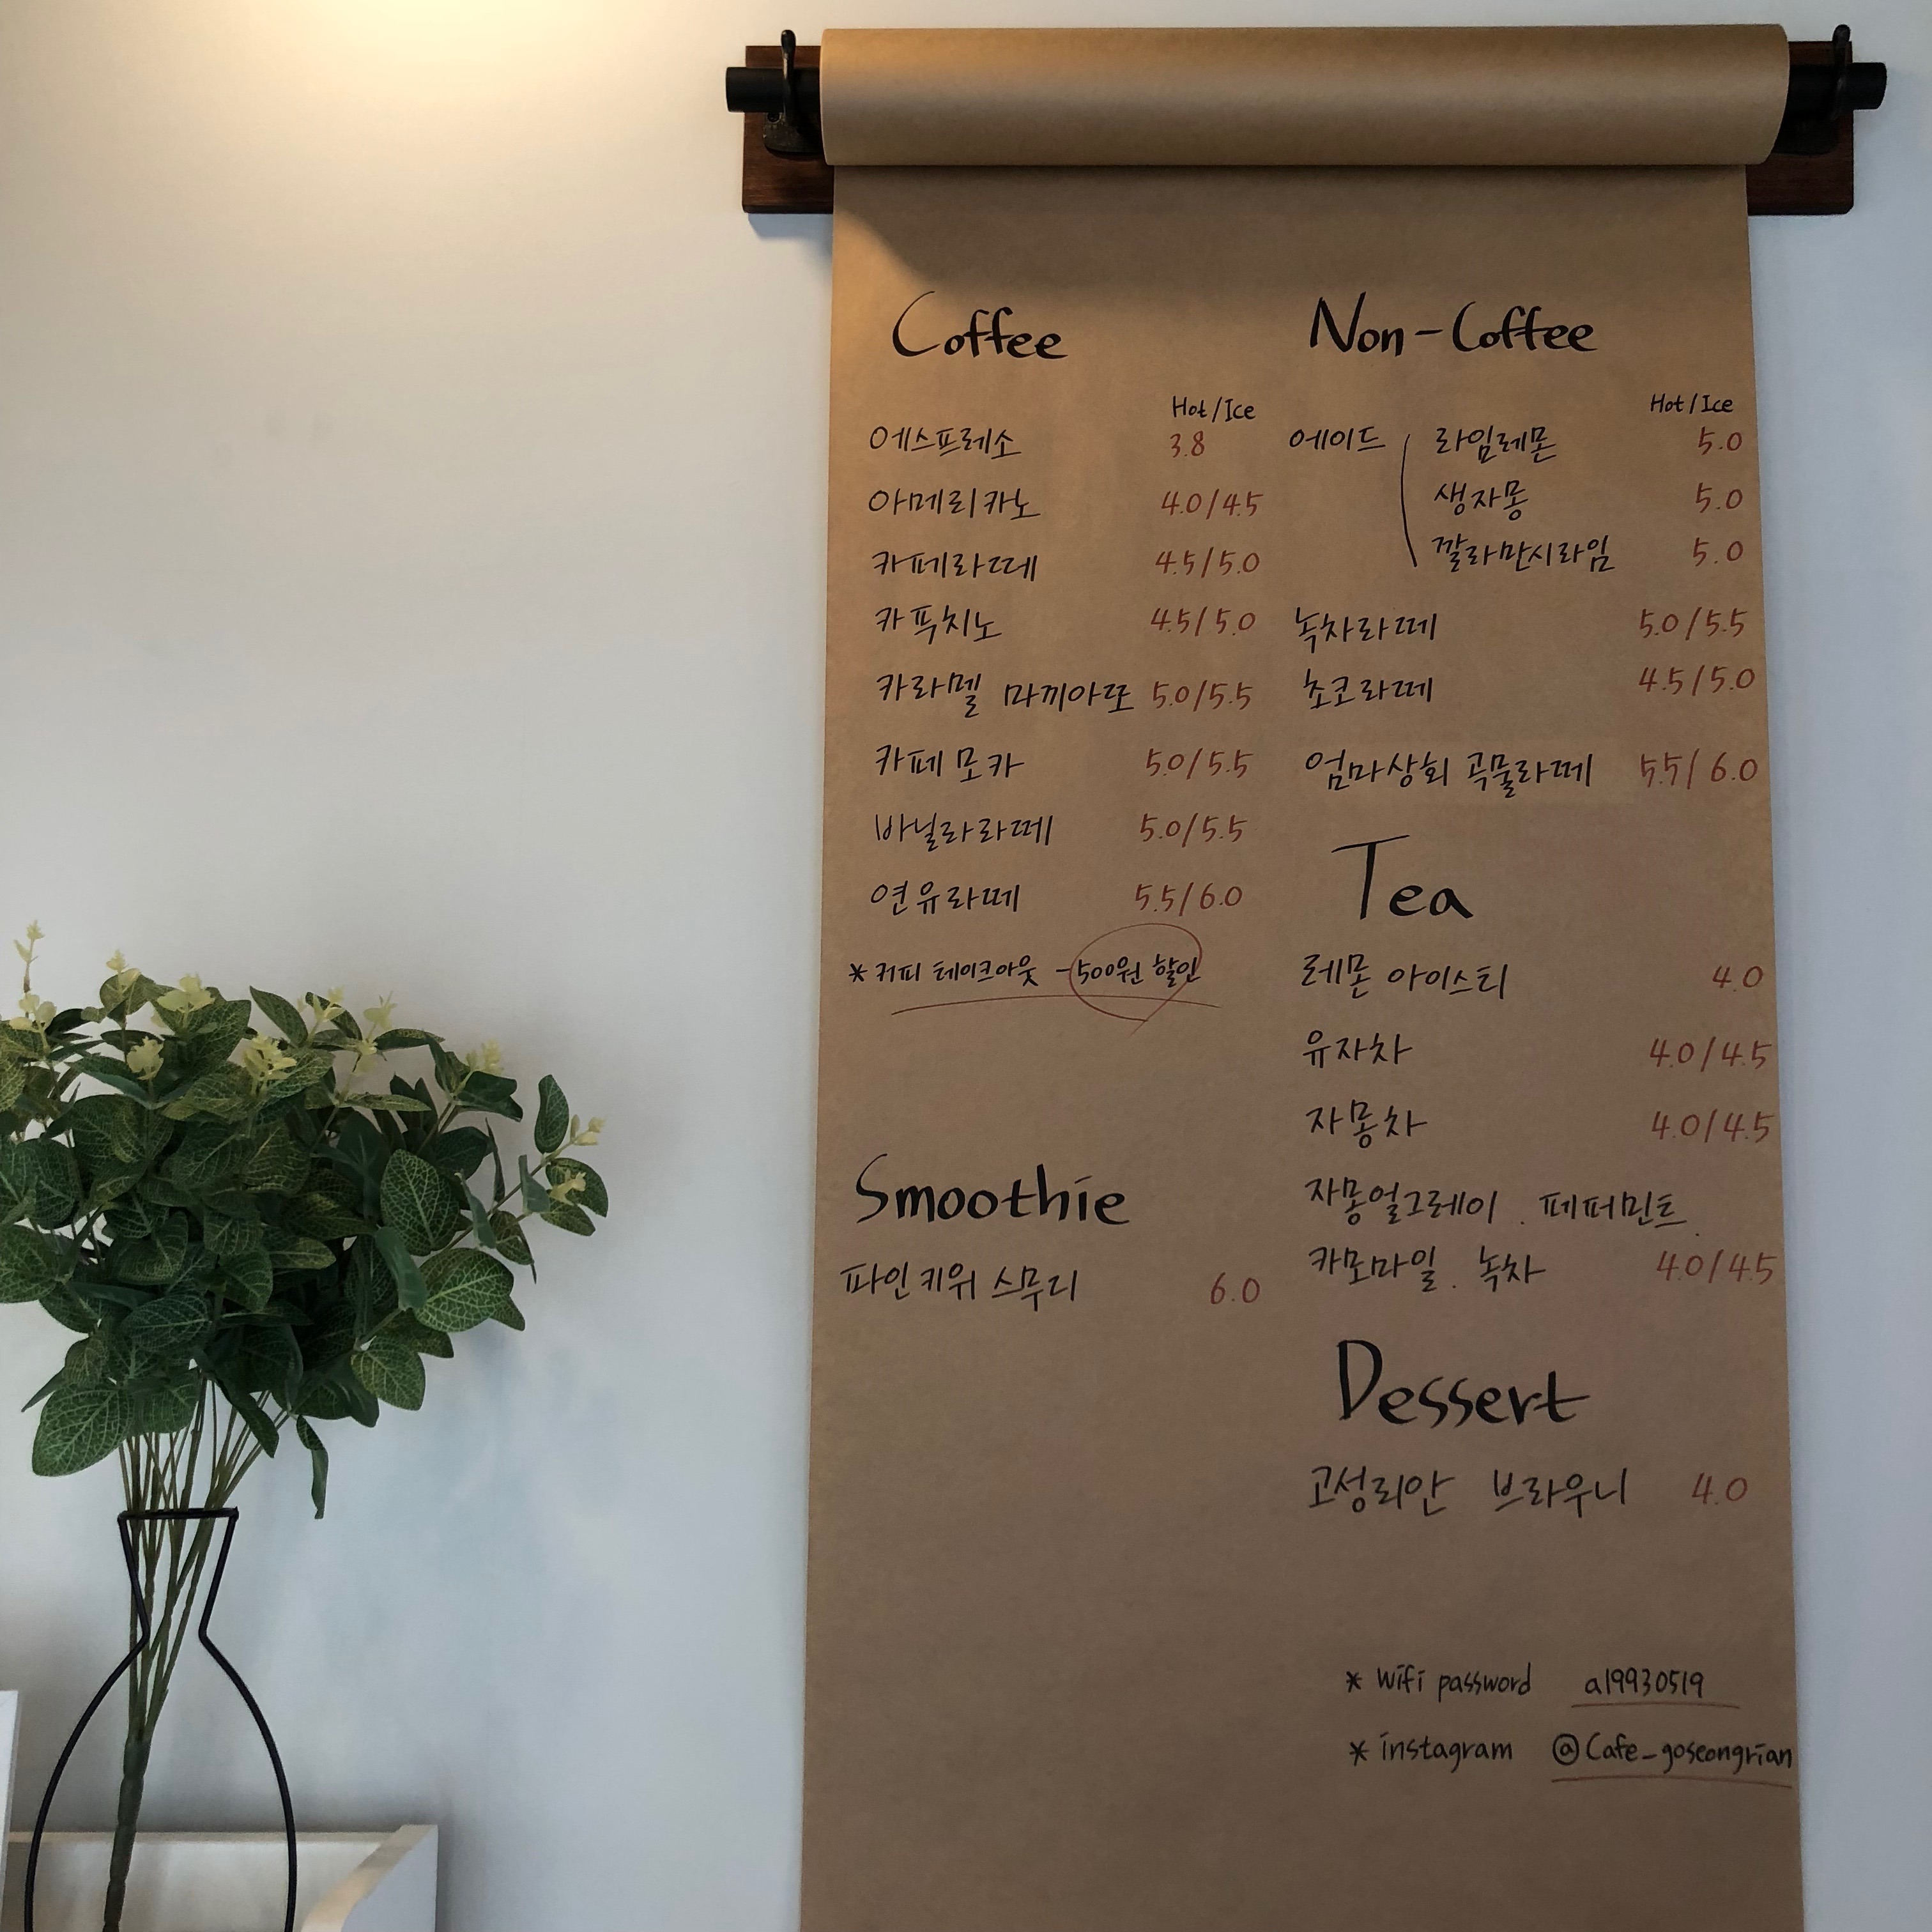 Coffee
Hot/Ice
에스프레소 3.8
아메리카노 4.0/4.5
카페라떼 4.5/5.0
카푸치노 4.5/5.0
카라멜 마끼아또 5.0/5.5
카페모카 5.0/5.5
바닐라라떼 5.0/5.5
연유라떼 5.5/6.0
*커피 테이크아웃 -500원 할인
Smoothie
파인키위 스무디 6.0
Non-Coffee
Hot/Ice
에이드 라임레몬 5.0
생자몽 5.0
깔라만시라임 5.0
녹차라떼 5.0/5.5
초코라떼 4.5/5.0
엄마상회 곡물라떼 5.5/6.0
Tea
레몬 아이스티 4.0
유자차 4.0/4.5
자몽차 4.0/4.5
자몽얼그레이 . 페퍼민트 .
카모마일 . 녹차 4.0/4.5
Dessert
고성리안 브라우니 4.0
* Wifi password a19930519
* instagram @Cafe_goseongrian